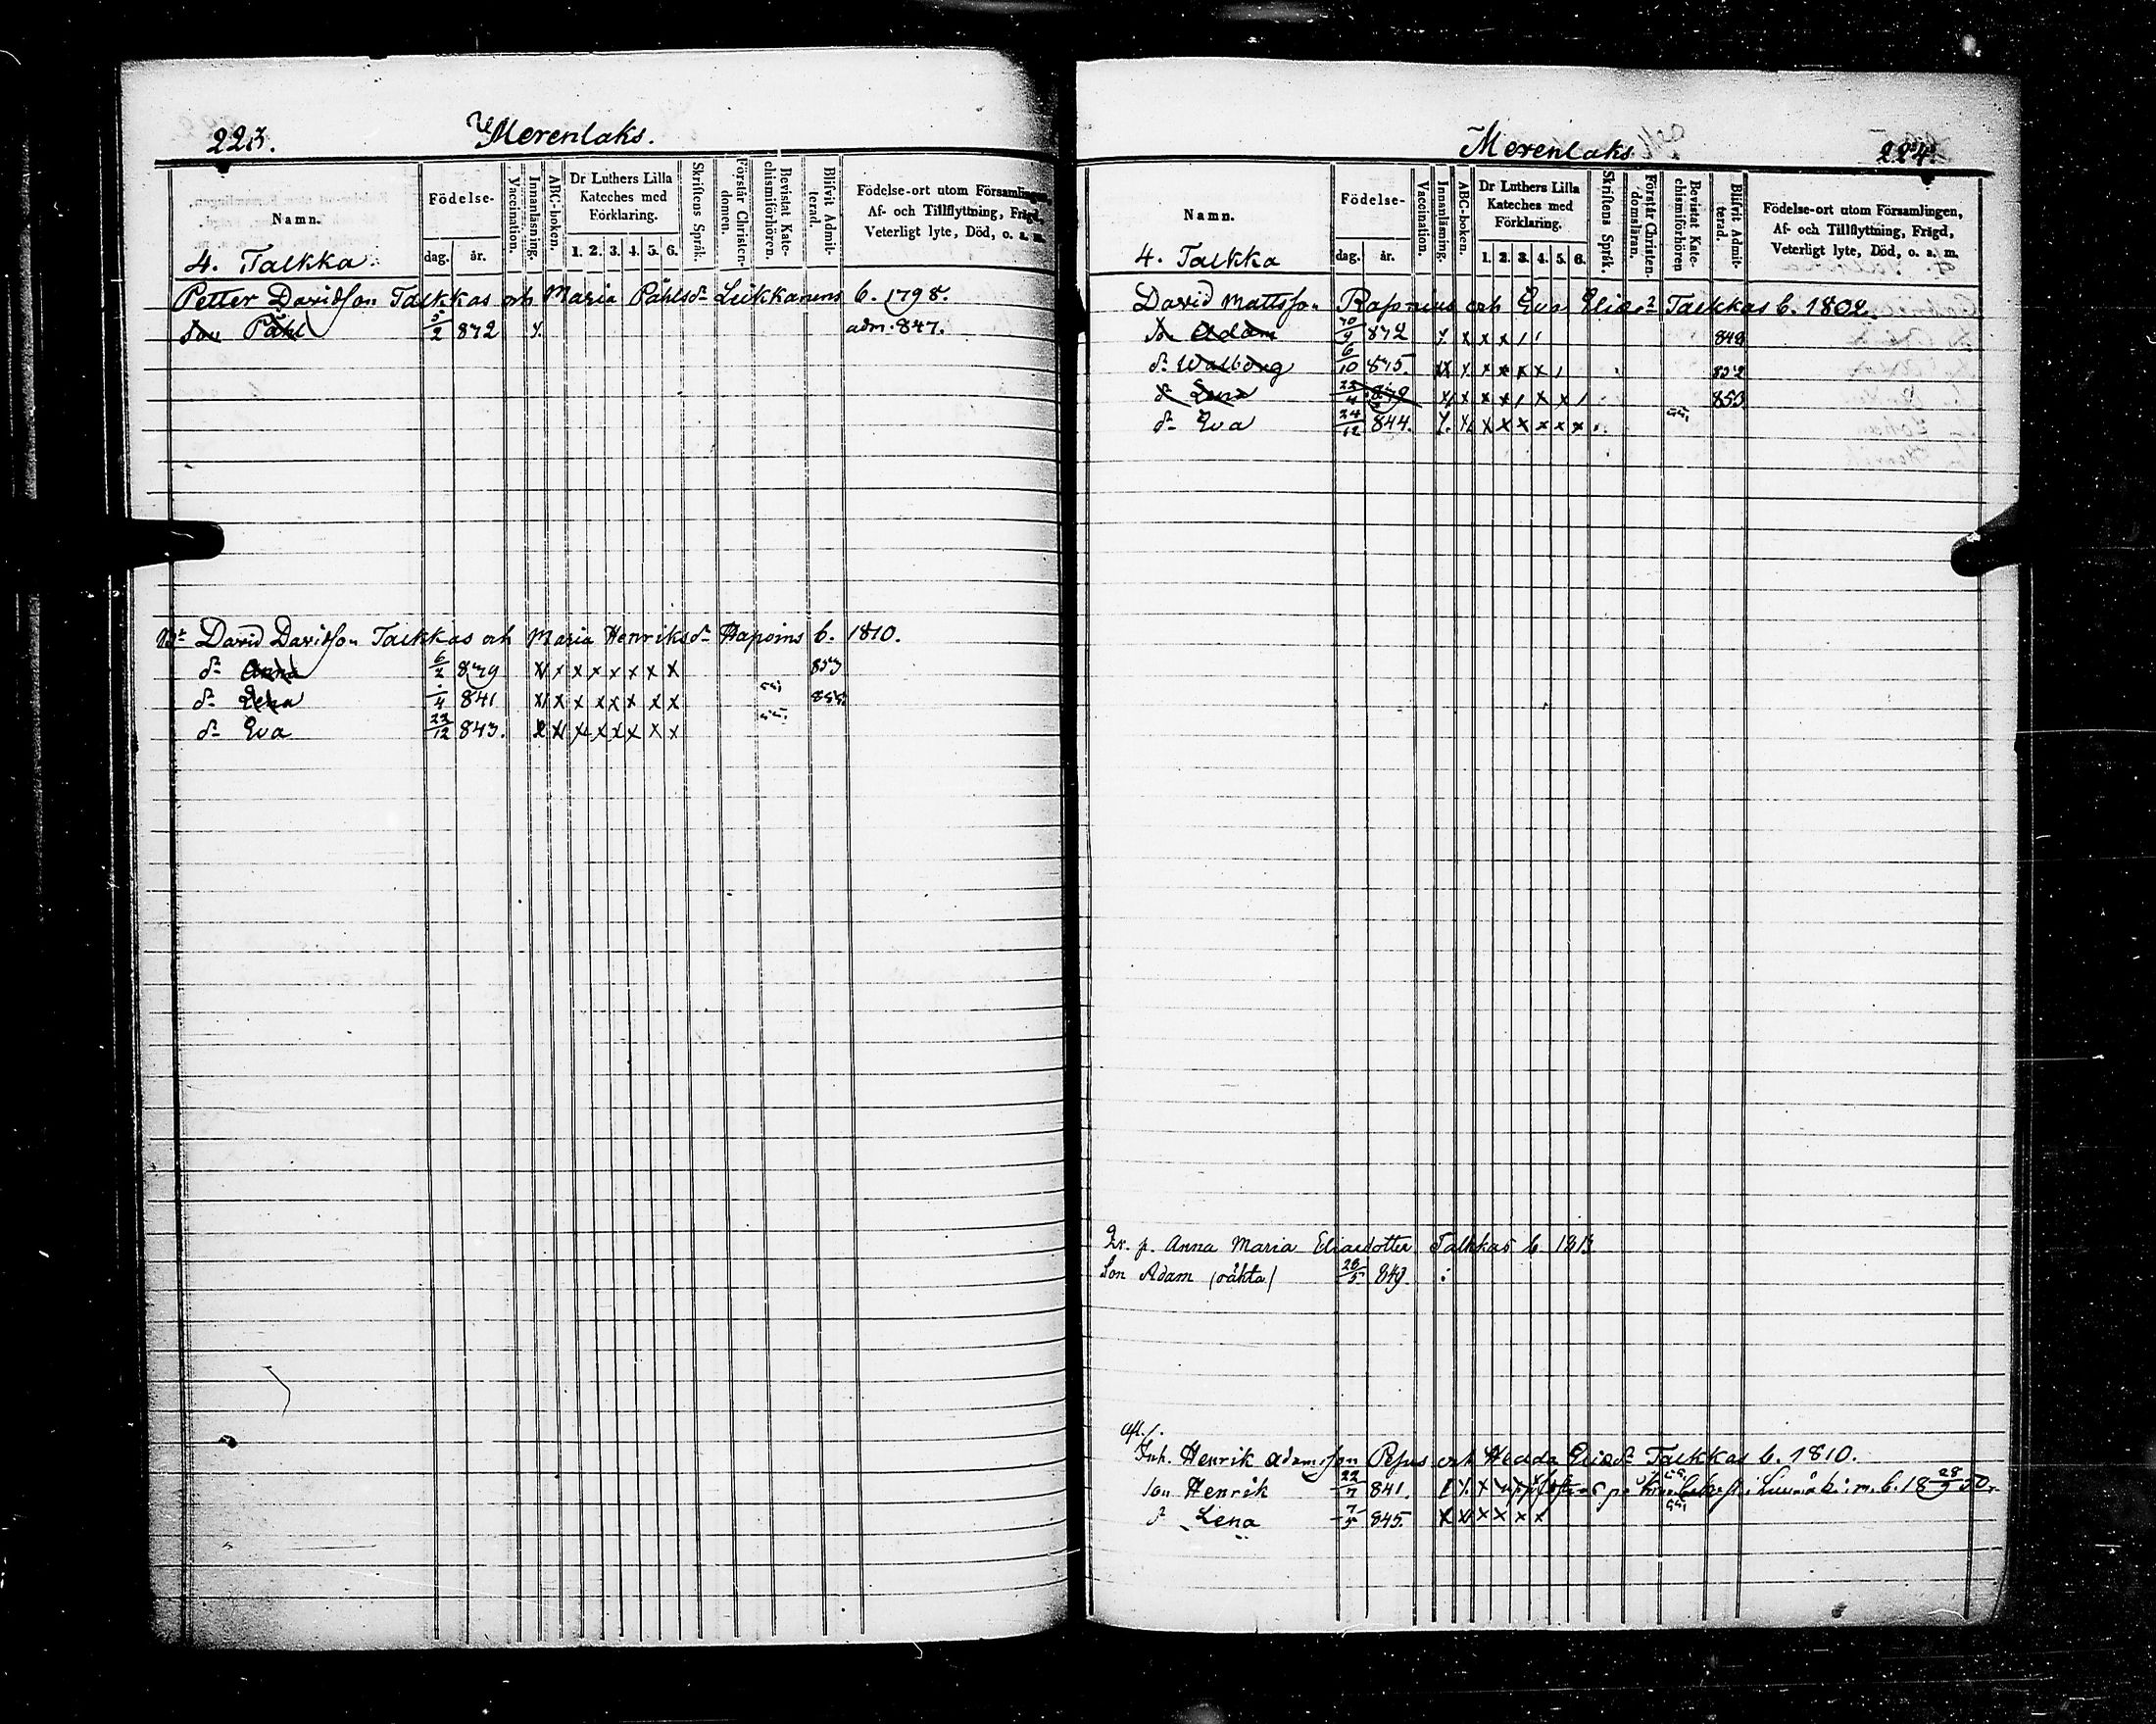 223.
Merenlaks.
Namn.
Födelse-
dag. år.
Vaccination.
Innanläsning.
ABC-boken.
Dr Luthers Lilla Kateches med Förklaring.
1. 2. 3. 4. 5. 6.
Skriftens Språk.
Förstår Christen-domen.
Bevistat Kate-chismiförhören.
Blifvit Admit-terad.
Födelse-ort utom Församlingen,
Af- och Tillflyttning, Frägd,
Veterligt lyte, Död, o. a. m.
4. Talkka
Petter Davidson Talkkas och Maria Påhlsdr Leikkanens b. 1798.
Son Påhl 5/2 832 x adm. 847.
David Davidson Talkkas och Maria Henriksdr Raponius b. 1810.
dr Anna 6/2 839 x x x x x x x x 853
dr Lena 4 841 x x x x x x x x 855
dr Eva 22/12 843. x x x x x x x x
Merenlaks
224.
Namn.
Födelse-
dag. år.
Vaccination.
Innanläsning.
ABC-boken.
Dr Luthers Lilla Kateches med Förklaring.
1. 2. 3. 4. 5. 6.
Skriftens Språk.
Förstår Christen-domsläran.
Bevistat Kate-chismiförhören
Blifvit Admit-terad.
Födelse-ort utom Församlingen,
Af- och Tillflyttning, Frägd,
Veterligt lyte, Död, o. a. m.
4. Talkka
David Mattsson Raponius och Eva Eliasdr Talkkas b. 1802.
Adam 832 x x x x 848
dr Walborg 6/10 835. x x x x x x 852
dr Lena 839 x x x x x x x 853
dr Eva 24/12 844. x x x x x x x x
p. Anna Maria Eliasdotter Talkkas b. 1813
Son Adam (oäkta) 28/5 849
Inh. Henrik Adamsson Pepus och Hedda Eliasdr Talkkas b. 1810.
son Henrik 22/7 841. x x x
dr Lena 7/5 845. x x x x x x